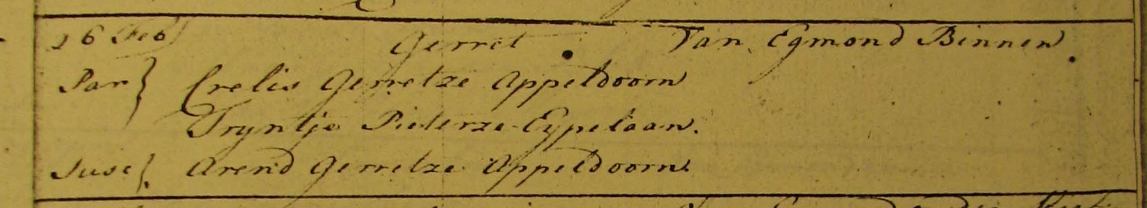 26 Feb Gerret. Van Egmond Binnen.
Par} Crelis Gerretze Appeldoorn
Tryntje Pieterze Eypelaan.
Susc}. Arend Gerretze Appeldoorn